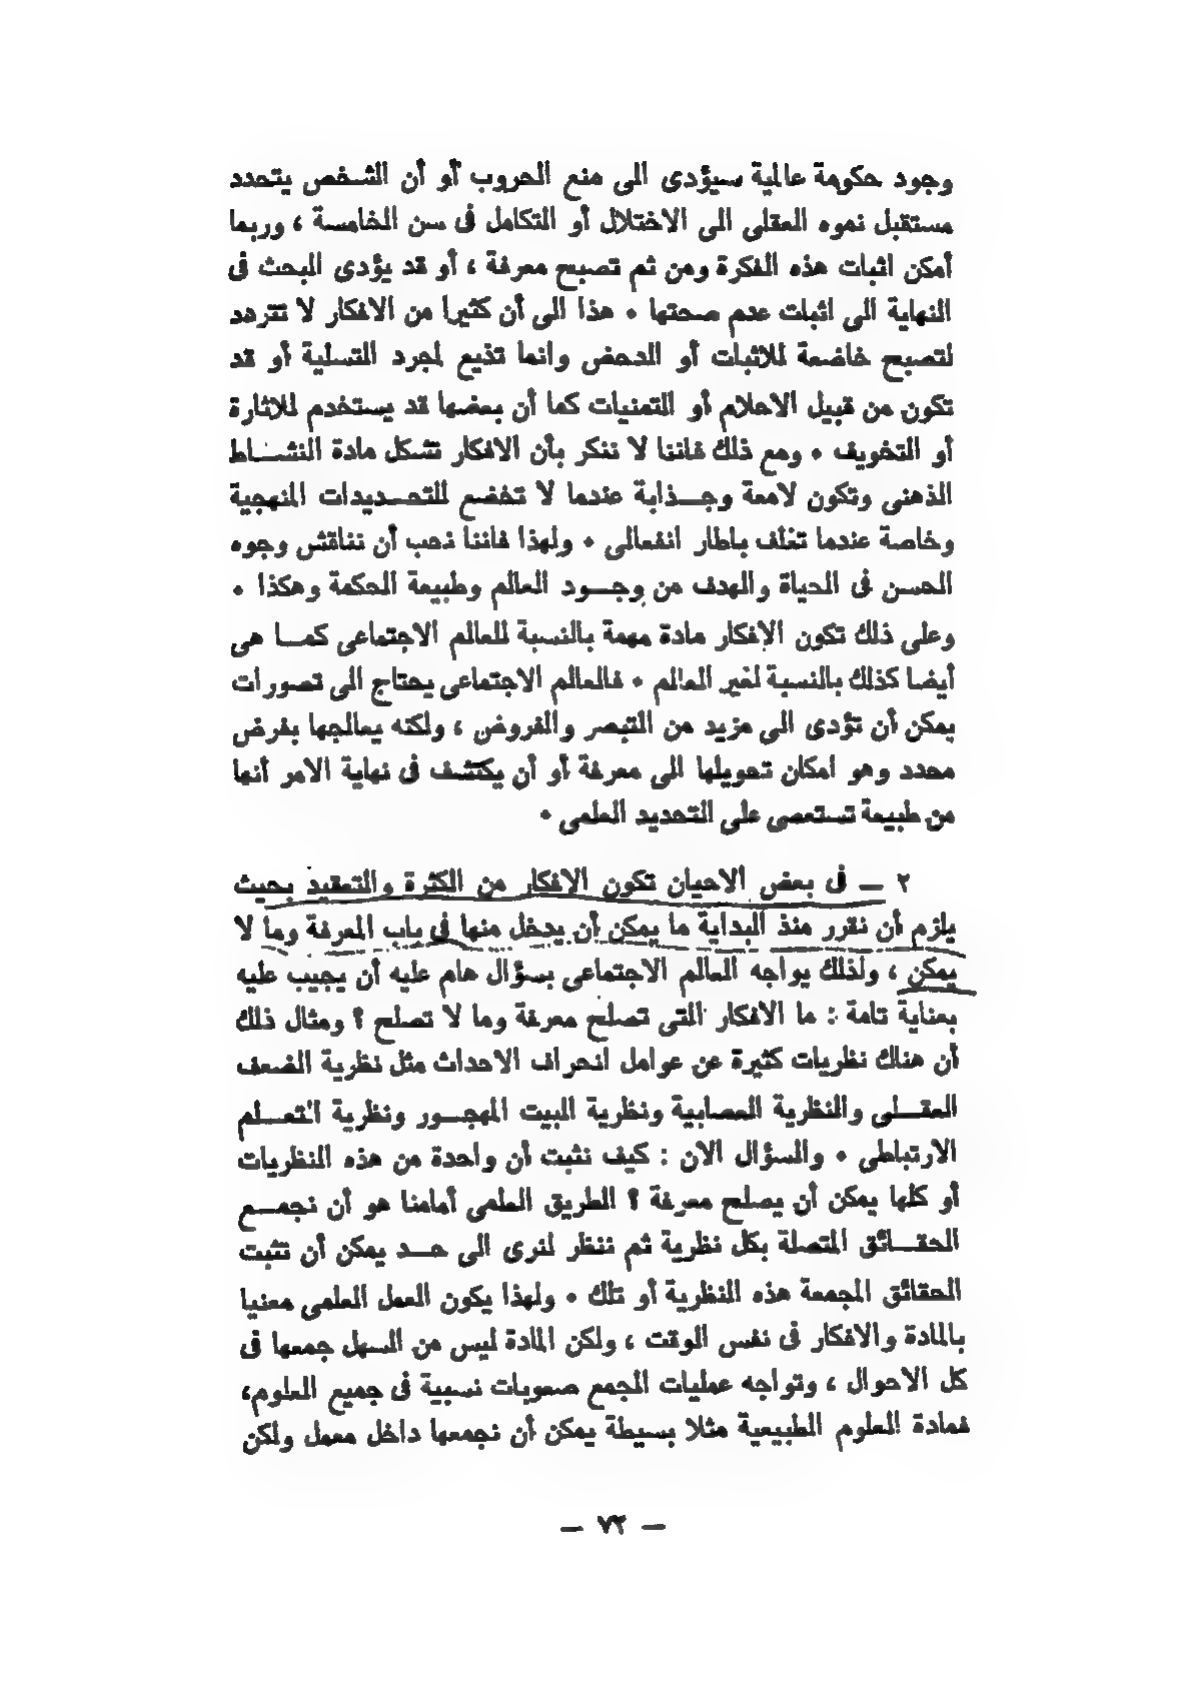 وجود حكومة عالمية سيؤدى الى منع الحروب أو أن الشخص يتحدد
مستقبل نموه العقلى الى الاختلال أو التكامل فى سن الخامسة ، وربما
أمكن اثبات هذه الفكرة ومن ثم تصبح معرفة ، أو قد يؤدى البحث فى
النهاية الى اثبات عدم صحتها ٠ هذا الى أن كثيرا من الافكار لا تتردد
لتصبح خاضعة للاثبات أو الدحض وانما تذيع لمجرد التسلية أو قد
تكون من قبيل الاحلام أو التمنيات كما أن بعضها قد يستخدم للاثارة
أو التخويف ٠ ومع ذلك فاننا لا ننكر بأن الافكار تشكل مادة النشــاط
الذهنى وتكون لامعة وجــذابة عندما لا تخضع للتحــديدات المنهجية
وخاصة عندما تغلف باطار انفعالى ٠ ولهذا فاننا نحب أن نناقش وجوه
الحسن فى الحياة والهدف من وجــود العالم وطبيعة الحكمة وهكذا ٠
وعلى ذلك تكون الافكار مادة مهمة بالنسبة للعالم الاجتماعى كمــا هى
أيضا كذلك بالنسبة لغير العالم ٠ فالعالم الاجتماعى يحتاج الى تصورات
يمكن أن تؤدى الى مزيد من التبصر والفروض ، ولكنه يعالجها بفرض
محدد وهو امكان تحويلها الى معرفة أو أن يكتشف فى نهاية الامر أنها
من طبيعة تستعصى على التحديد العلمى ٠
٢ ــ فى بعض الاحيان تكون الافكار من الكثرة والتعقيد بحيث
يلزم أن نقرر منذ البداية ما يمكن أن يدخل منها فى باب المعرفة وما لا
يمكن ، ولذلك يواجه العالم الاجتماعى بسؤال هام عليه أن يجيب عليه
بعناية تامة : ما الافكار التى تصلح معرفة وما لا تصلح ؟ ومثال ذلك
أن هناك نظريات كثيرة عن عوامل انحراف الاحداث مثل نظرية الضعف
العقــلى والنظرية العصابية ونظرية البيت المهجــور ونظرية التعــلم
الارتباطى ٠ والسؤال الان : كيف نثبت أن واحدة من هذه النظريات
أو كلها يمكن أن يصلح معرفة ؟ الطريق العلمى أمامنا هو أن نجمــع
الحقــائق المتصلة بكل نظرية ثم ننظر لنرى الى حــد يمكن أن تثبت
الحقائق المجمعة هذه النظرية أو تلك ٠ ولهذا يكون العمل العلمى معنيا
بالمادة والافكار فى نفس الوقت ، ولكن المادة ليس من السهل جمعها فى
كل الاحوال ، وتواجه عمليات الجمع صعوبات نسبية فى جميع العلوم،
فمادة العلوم الطبيعية مثلا بسيطة يمكن أن نجمعها داخل معمل ولكن
— ٧٣ —